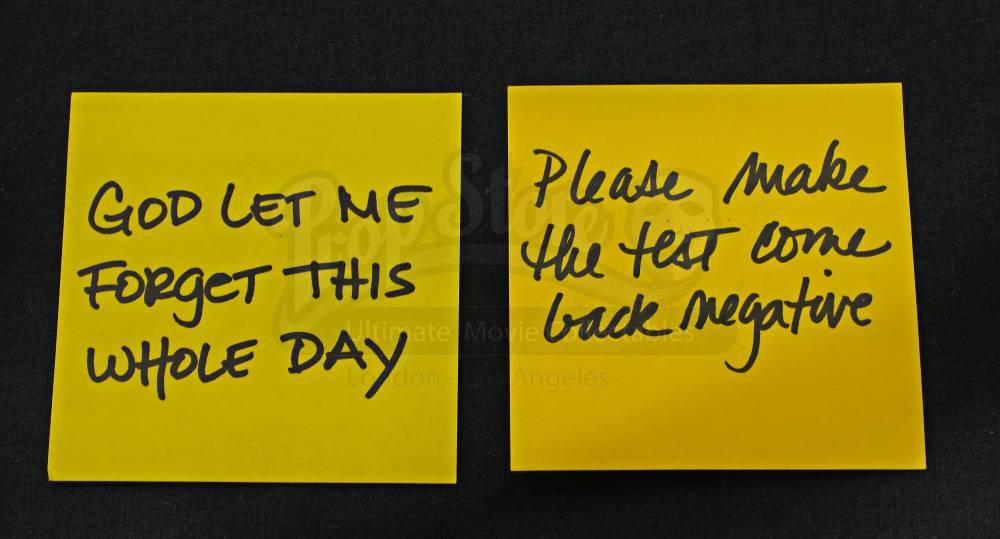 GOD LET ME
FORGET THIS
WHOLE DAY
Please make
the test come
back negative
Prop Store
Ultimate Movie Collectables
London - Los Angeles